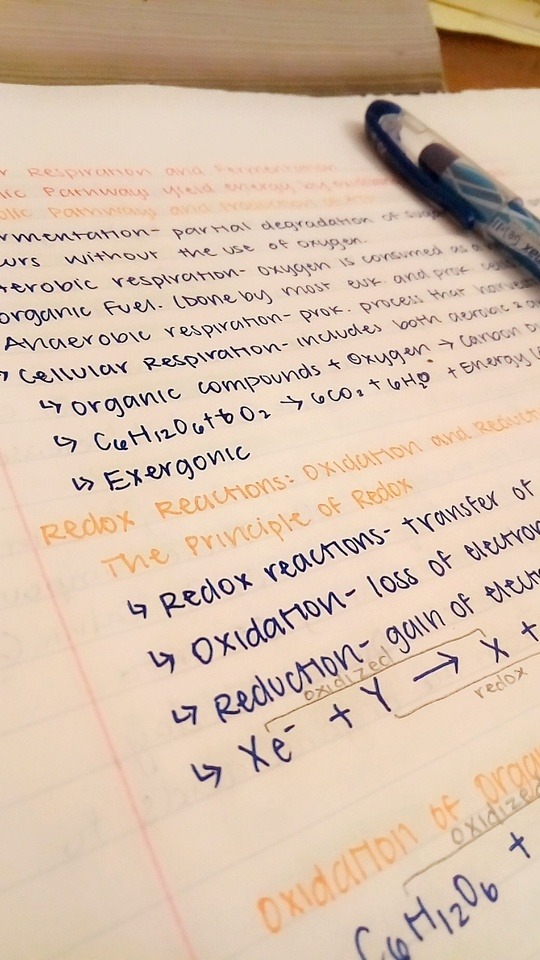 Respiration and Fermentation
Pathways yield energy by
Pathways and
rmentation- partial degradation of
urs without the use of oxygen.
erobic respiration- oxygen is consumed as
organic fuel. (Done by most euk. and prok.
Anaerobic respiration- prok. process that
↳ Cellular Respiration- includes both aerobic &
↳ organic compounds + oxygen → Carbon
↳ C6H12O6 + 6O2 → 6CO2 + 6H2O + Energy
↳ Exergonic
Redox Reactions: Oxidation and
The Principle of Redox
↳ Redox reactions- transfer of
↳ Oxidation- loss of electron
↳ Reduction- gain of elect
oxidized
↳ Xe- + Y → X +
redox
Oxidation of
oxidized
C6H12O6 +